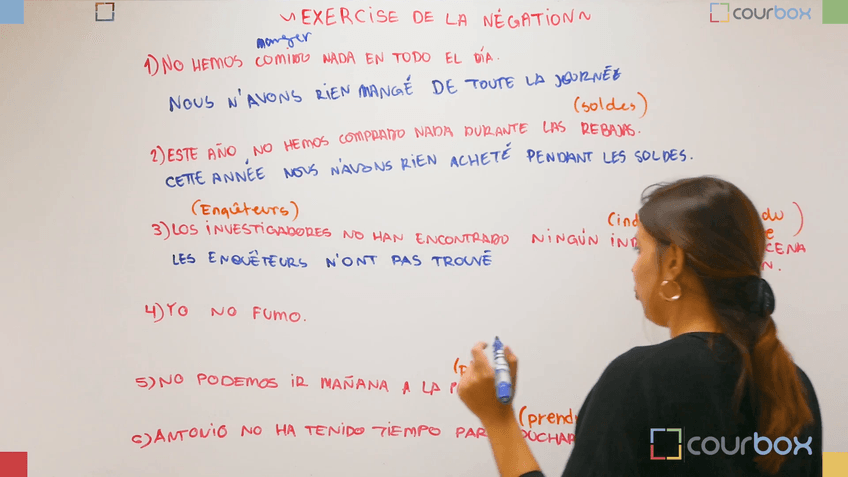 ~EXERCISE DE LA NÉGATION~
courbox
manger
1) NO HEMOS COMIDO NADA EN TODO EL DÍA.
NOUS N'AVONS RIEN MANGÉ DE TOUTE LA JOURNÉE
(soldes)
2) ESTE AÑO NO HEMOS COMPRADO NADA DURANTE LAS REBAJAS.
CETTE ANNÉE NOUS N'AVONS RIEN ACHETÉ PENDANT LES SOLDES.
(Enquêteurs)
3) LOS INVESTIGADORES NO HAN ENCONTRADO NINGÚN
LES ENQUÊTEURS N'ONT PAS TROUVÉ
4) YO NO FUMO.
5) NO PODEMOS IR MAÑANA A LA
6) ANTONIO NO HA TENIDO TIEMPO
courbox